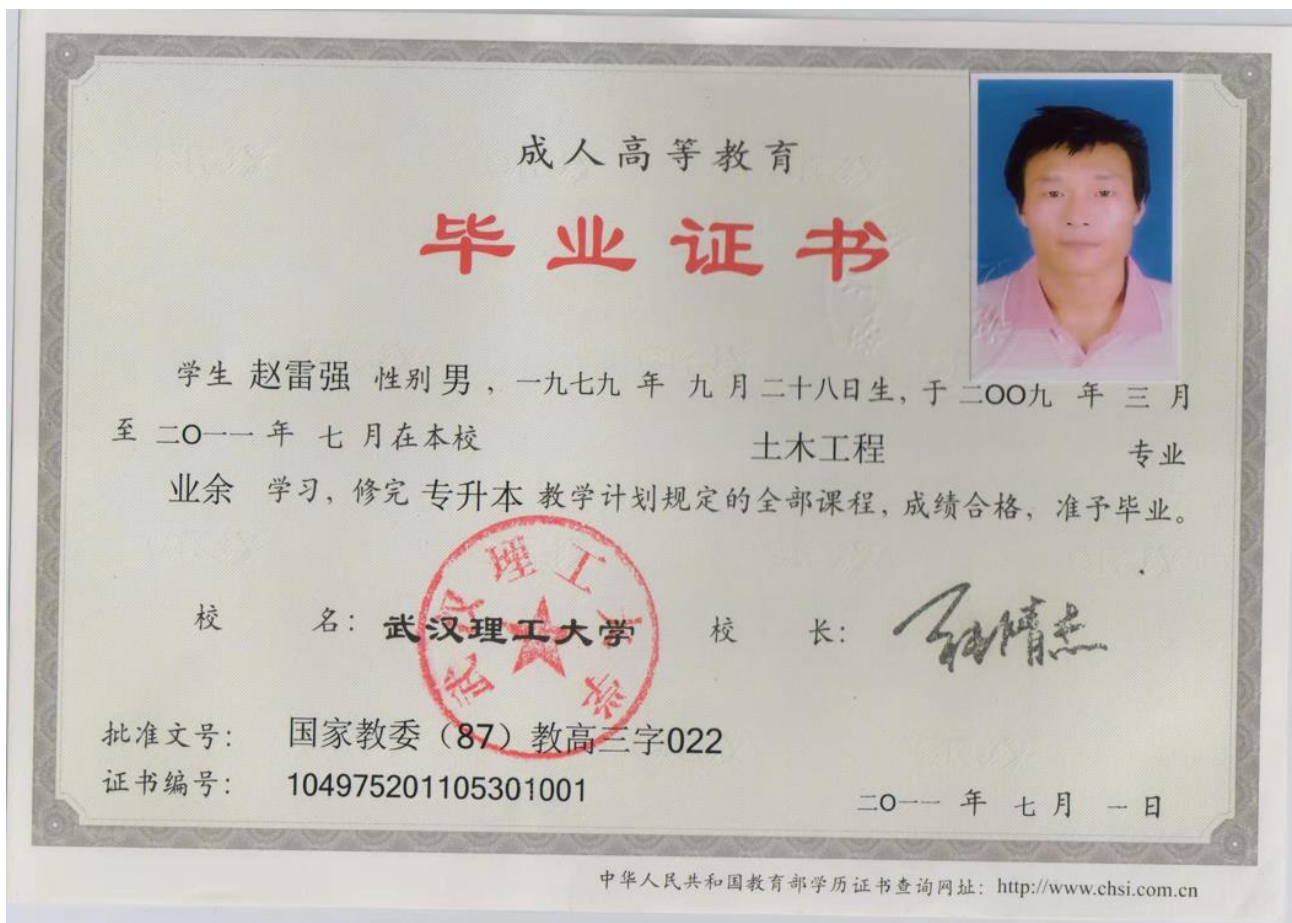 成人高等教育
毕业证书
学生 赵雷强 性别 男 ，一九七九 年 九 月 二十八日生，于 二OO九 年 三 月
至 二O一一 年 七 月在本校 土木工程 专业
业余 学习，修完 专升本 教学计划规定的全部课程，成绩合格，准予毕业。
校 名：武汉理工大学 校 长：
武汉理工大学
批准文号： 国家教委（87）教高三字022
证书编号： 104975201105301001
二O一一 年 七 月 一 日
中华人民共和国教育部学历证书查询网址：http://www.chsi.com.cn